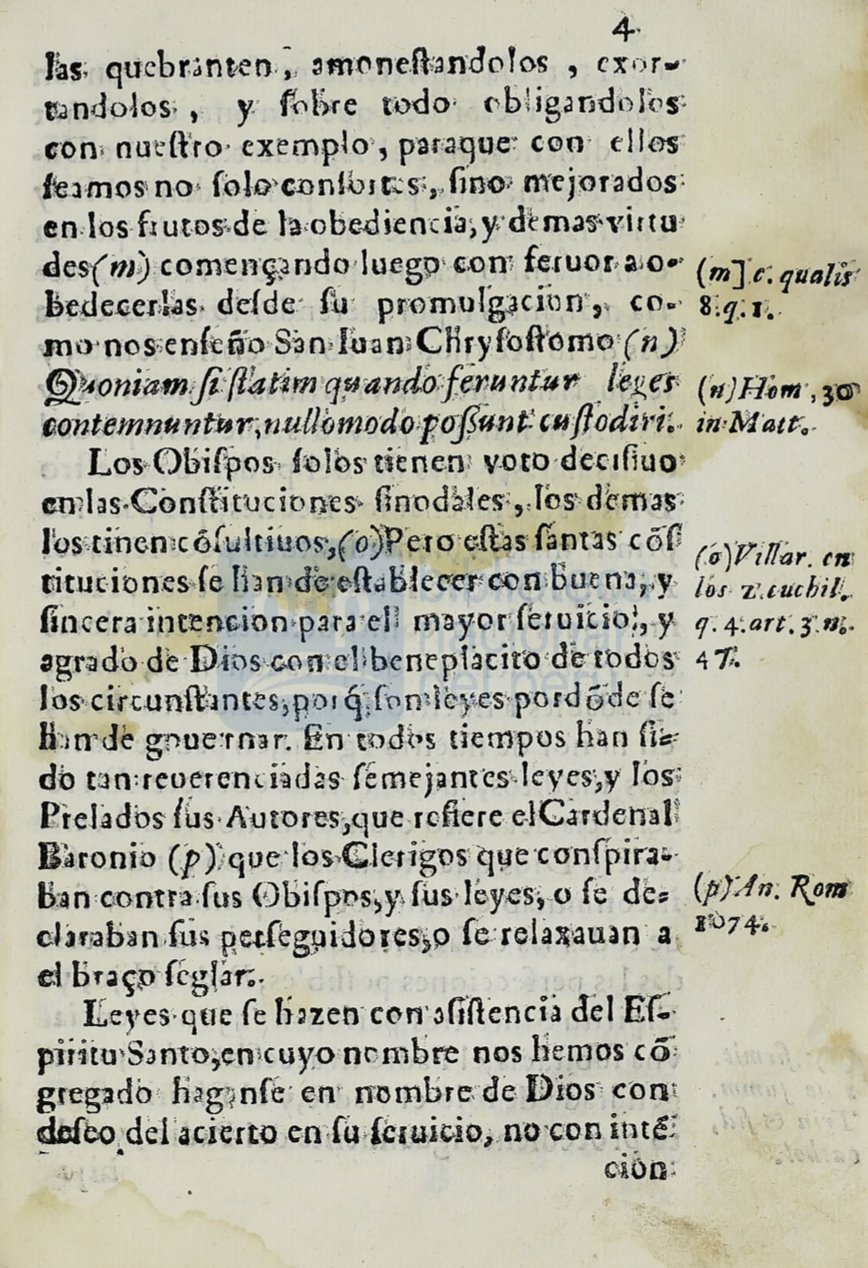 4.
las quebranten, amonestandolos, exor-
tandolos, y sobre todo obligandolos
con nuestro exemplo, paraque con ellos
seamos no solo consortes, sino mejorados
en los frutos de la obediencia, y demas virtu
des(m) començando luego con feruor a o-
bedecerlas desde su promulgacion, co-
mo nos enseño San Iuan Chrysostomo (n)
Quoniam si statim quando feruntur leges
contemnuntur, nullo modo possunt custodiri.
Los Obispos solos tienen voto decisiuo
en las Constituciones sinodales, los demas
los tinen cōsultiuos, (o) Pero estas santas cōs
tituciones se han de establecer con buena, y
sincera intencion para el mayor seruicio, y
agrado de Dios con el beneplacito de todos
los circunstantes, porq̃ son leyes por dōde se
han de gouernar. En todos tiempos han si-
do tan reuerenciadas semejantes leyes, y los
Prelados sus Autores, que refiere el Cardenal
Baronio (p) que los Clerigos que conspira-
ban contra sus Obispos, y sus leyes, o se de-
claraban sus perseguidores, o se relaxauan a
el braço seglar.
Leyes que se hazen con asistencia del Es-
piritu Santo, en cuyo nombre nos hemos cō
gregado haganse en nombre de Dios con
deseo del acierto en su seruicio, no con intē
cion
(m] c. qualis
8. q. 1.
(n) Hom, 30
in Matt.
(o) Villar. en
los 2. cuchil.
q. 4. art. 3. n.
47.
(p) An. Rom
1074.